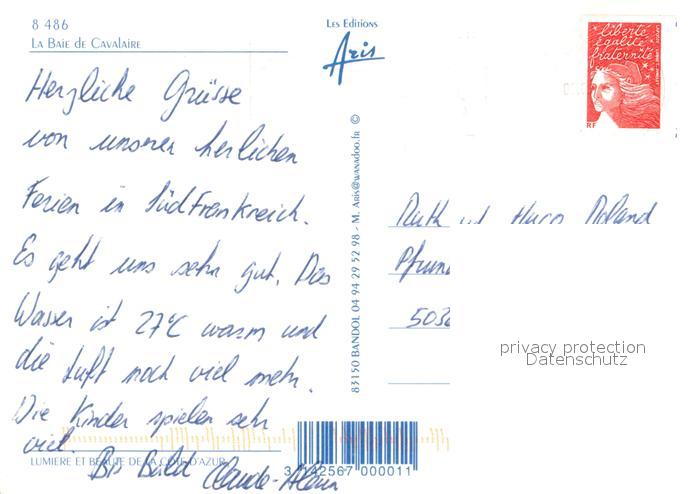 8 486
La Baie de Cavalaire
Les Editions
Aris
liberté
égalité
fraternité
RF
Herzliche Grüsse
von unserer herlichen
Ferien in Südfrankreich.
Es geht uns sehr gut. Das
Wasser ist 27°C warm und
die Luft noch viel mehr.
Die Kinder spielen sehr
viel.
Bis Bald Claude-Alain
LUMIERE ET BEAUTE DE LA COTE D'AZUR
3 142567 000011
83150 BANDOL 04 94 29 52 98 - M. Aris@wanadoo.fr ©
Ruth und Hans Roland
Pfrun
5036
privacy protection
Datenschutz